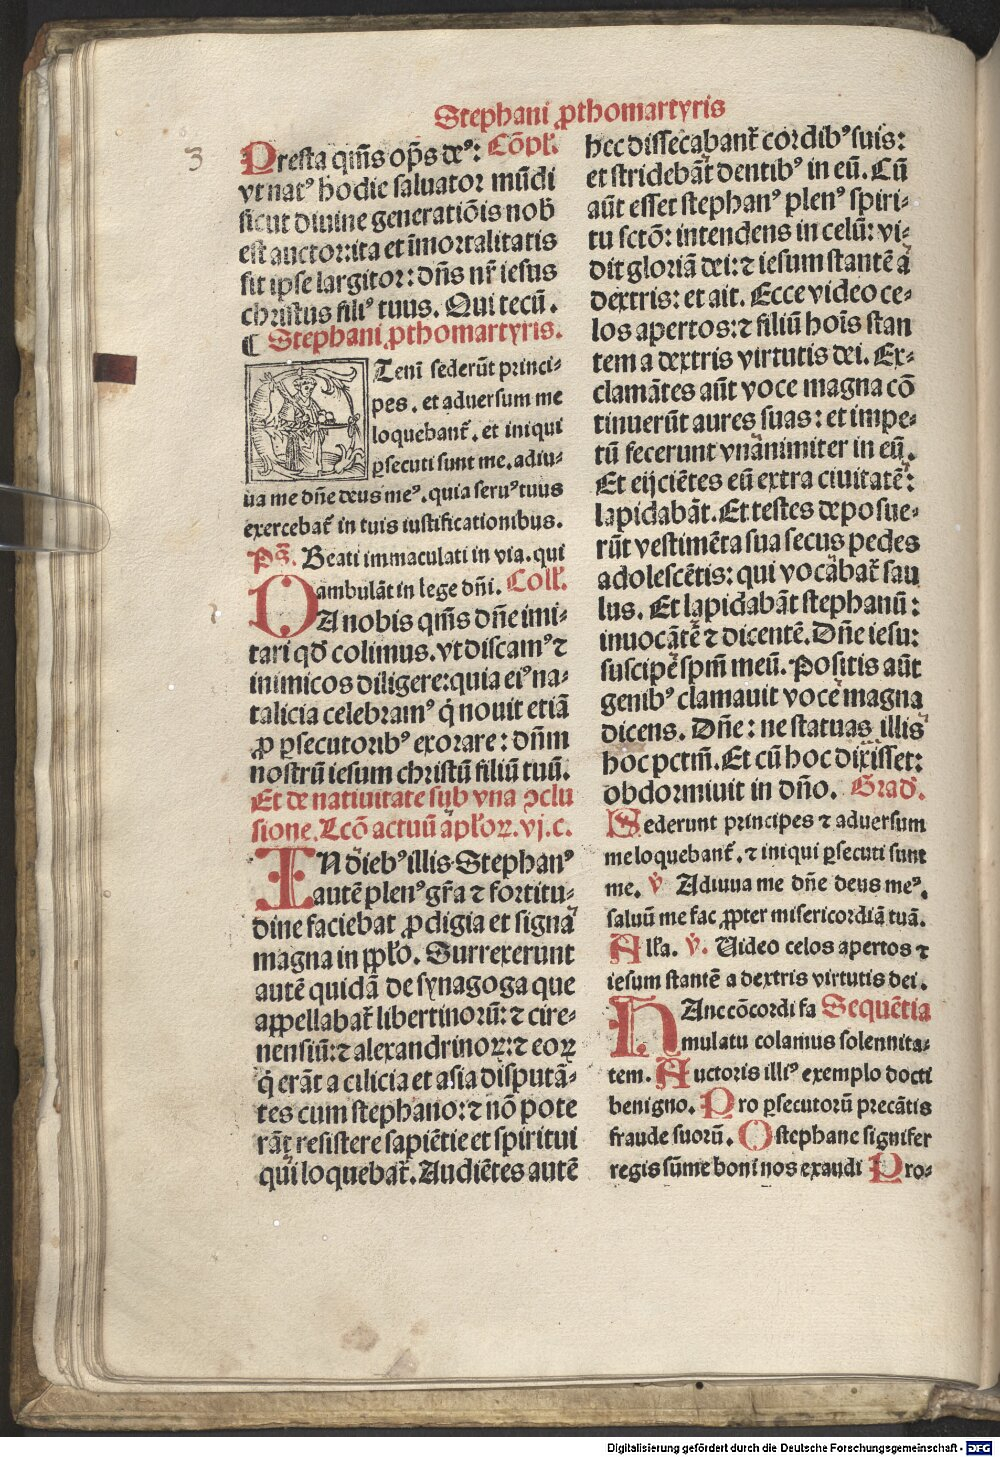 Stephani ꝓthomartyris
3
Presta qm̄s op̄s deꝰ: Cōpl'.
vt natꝰ hodie saluator mūdi
sicut diuine generatiōis nob̄
est auctor: ita et īmortalitatis
sit ipse largitor: dn̄s nr̄ iesus
christus filiꝰ tuus. Qui tecū.
¶ Stephani ꝓthomartyris.
Etenī sederūt princi-
pes. et aduersum me
loquebant᷑. et iniqui
ꝑsecuti sunt me. adiu-
ua me dn̄e deus meꝰ. quia seruꝰ tuus
exercebat᷑ in tuis iustificationibus.
Ps̄. Beati immaculati in via. qui
ambulāt in lege dn̄i. Coll'.
DA nobis qm̄s dn̄e imi-
tari qd̄ colimus. vt discamꝰ ⁊
inimicos diligere: quia eiꝰ na-
talicia celebramꝰ q̇ nouit etiā
ꝓ ꝑsecutoribꝰ exorare: dn̄m
nostrū iesum christū filiū tuū.
Et de natiuitate sub vna ꝯclu
sione. Lcō actuū apl'oꝝ. vj. c.
IN dieb̄ꝰ illis Stephanꝰ
autē plenꝰ gr̄a ⁊ fortitu-
dine faciebat ꝓdigia et signa
magna in ppl'o. Surrexerunt
autē quidā de synagoga que
appellabat᷑ libertinorū: ⁊ cire-
nensiū: ⁊ alexandrinoꝝ: ⁊ eoꝝ
q̇ erāt a cilicia et asia disputā-
tes cum stephano: ⁊ nō pote
rāt resistere sapiētie et spiritui
qui loquebat᷑. Audiētes autē
hec dissecabant᷑ cordibꝰ suis:
et stridebāt dentibꝰ in eū. Cū
aūt esset stephanꝰ plenꝰ spiri-
tu sctō: intendens in celū: vi-
dit gloriā dei: ⁊ iesum stantē a
dextris: et ait. Ecce video ce-
los apertos: ⁊ filiū hoīs stan
tem a dextris virtutis dei. Ex-
clamātes aūt voce magna cō
tinuerūt aures suas: et impe-
tū fecerunt vnanimiter in eū.
Et eijciētes eū extra ciuitatē:
lapidabāt. Et testes deposue-
rūt vestimēta sua secus pedes
adolescētis: qui vocabat᷑ sau
lus. Et lapidabāt stephanū:
inuocātē ⁊ dicentē. Dn̄e iesu:
suscipe spm̄ meū. Positis aūt
genibꝰ clamauit voce magna
dicens. Dn̄e: ne statuas illis
hoc pctm̄. Et cū hoc dixisset:
obdormiuit in dn̄o. Grad'.
Sederunt principes ⁊ aduersum
me loquebant᷑. ⁊ iniqui ꝑsecuti sunt
me. ℣ Adiuua me dn̄e deus meꝰ.
saluū me fac ꝓpter misericordiā tuā.
All'a. ℣. Uideo celos apertos ⁊
iesum stantē a dextris virtutis dei.
HAnc cōcordi fa Sequētia
mulatu colamus solennita-
tem. Auctoris illiꝰ exemplo docti
benigno. Pro ꝑsecutorū precātis
fraude suorū. O stephane signifer
regis sūme boni nos exaudi Pro-
Digitalisierung gefördert durch die Deutsche Forschungsgemeinschaft - DFG